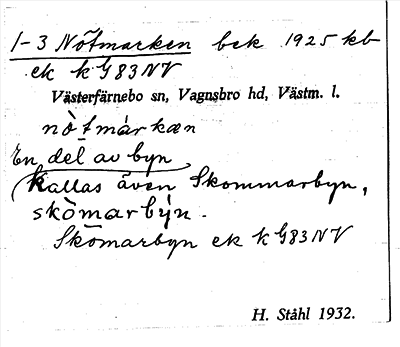 1-3 Nötmarken bek 1925 kb
ek k G83NV
Västerfärnebo sn, Vagnsbro hd, Västm. l.
nò̀tmárkæn
En del av byn
Kallas även Skommarbyn,
skòmarbýn.
Skömarbyn ek k G83NV
H. Ståhl 1932.